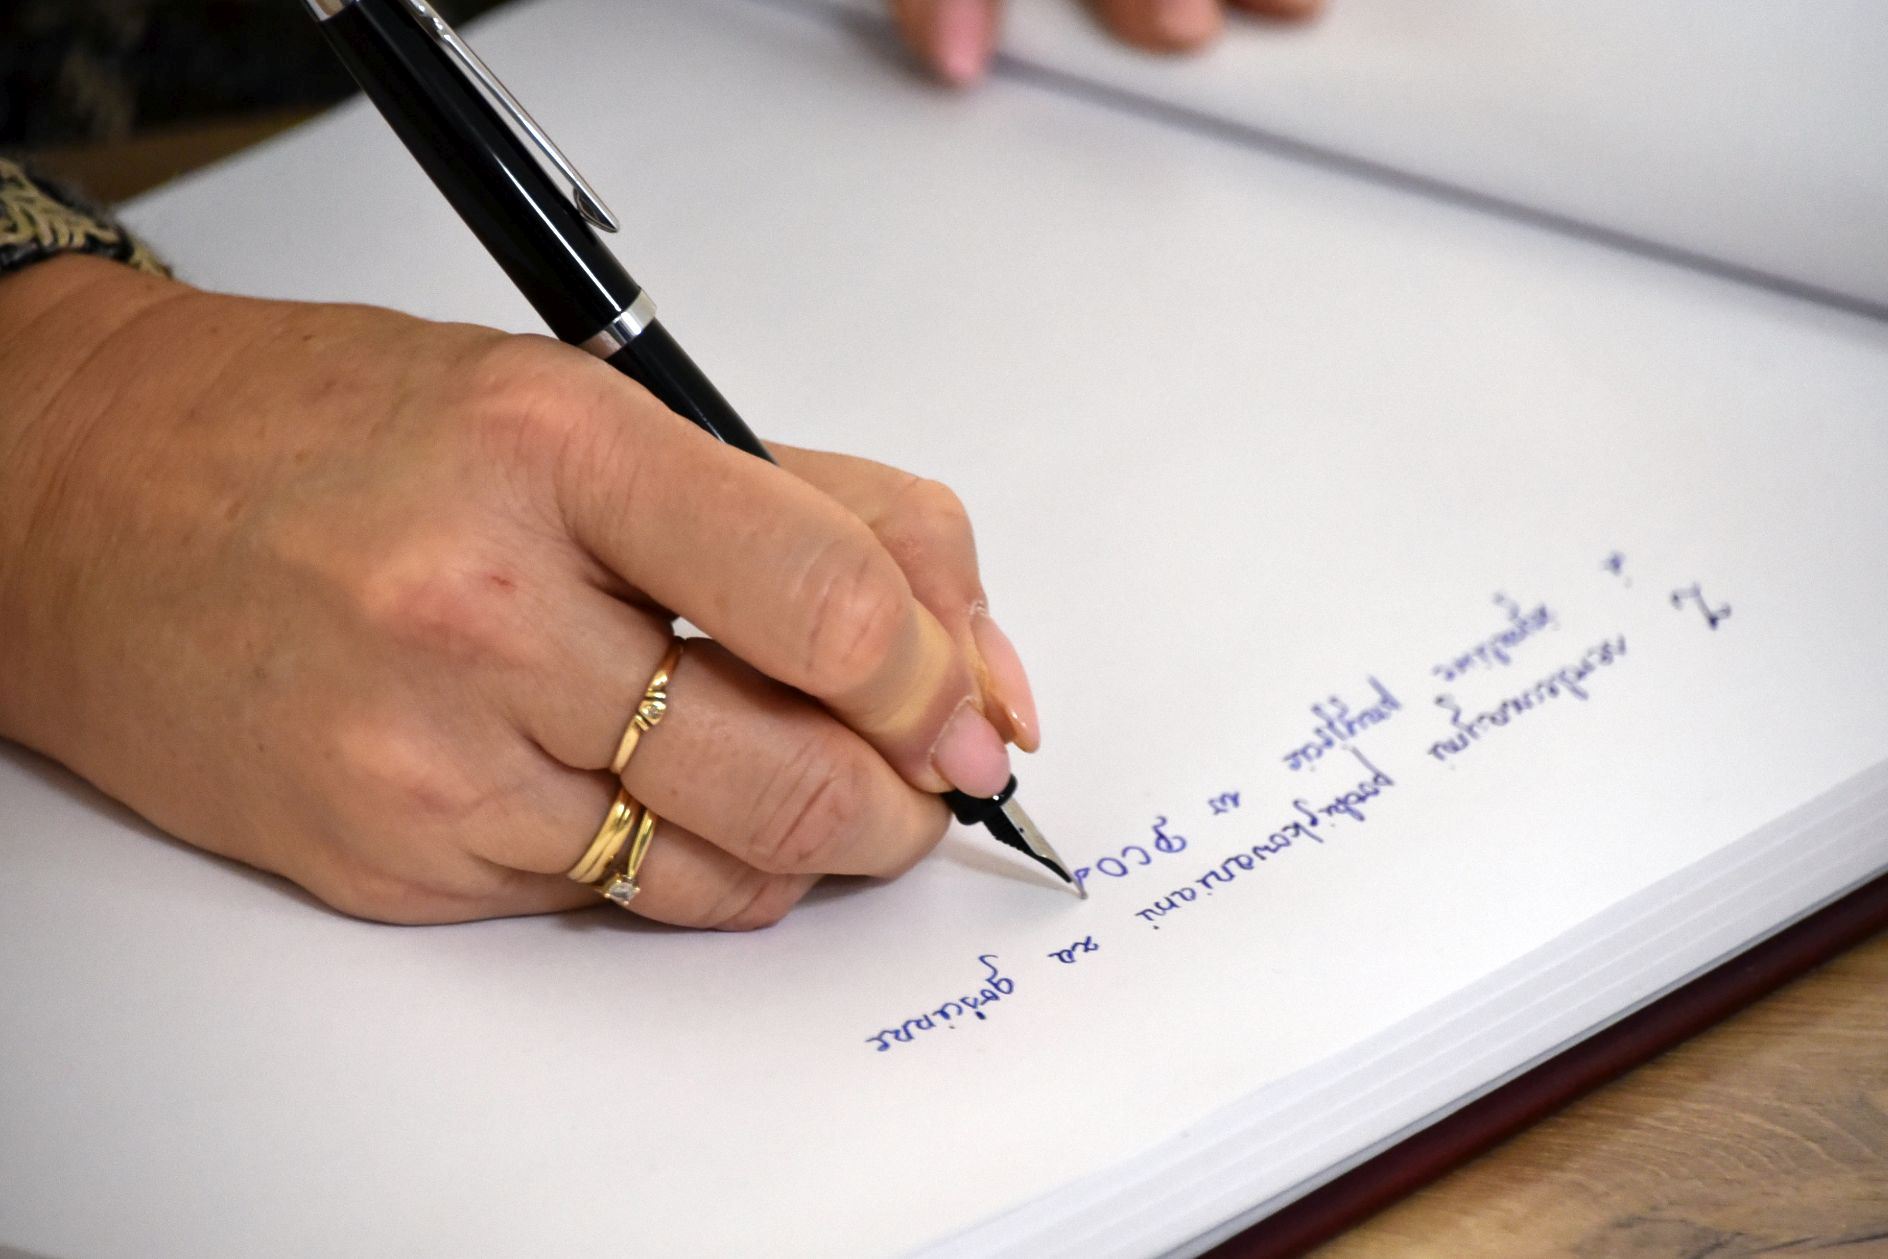 Z serdecznymi podziękowaniami za gościnne
i życzliwe przyjęcie w PCO